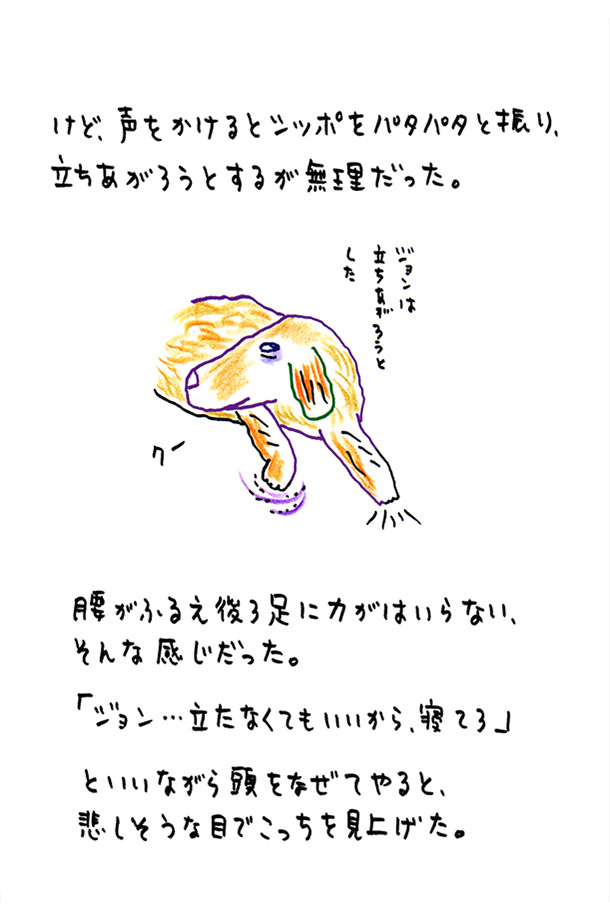 けど、声をかけるとシッポをパタパタと振り、
立ちあがろうとするが無理だった。
ジョンは
立ちあがろうと
した
クー
腰がふるえ後ろ足に力がはいらない、
そんな感じだった。
「ジョン…立たなくてもいいから、寝てろ」
といいながら頭をなぜてやると、
悲しそうな目でこっちを見上げた。